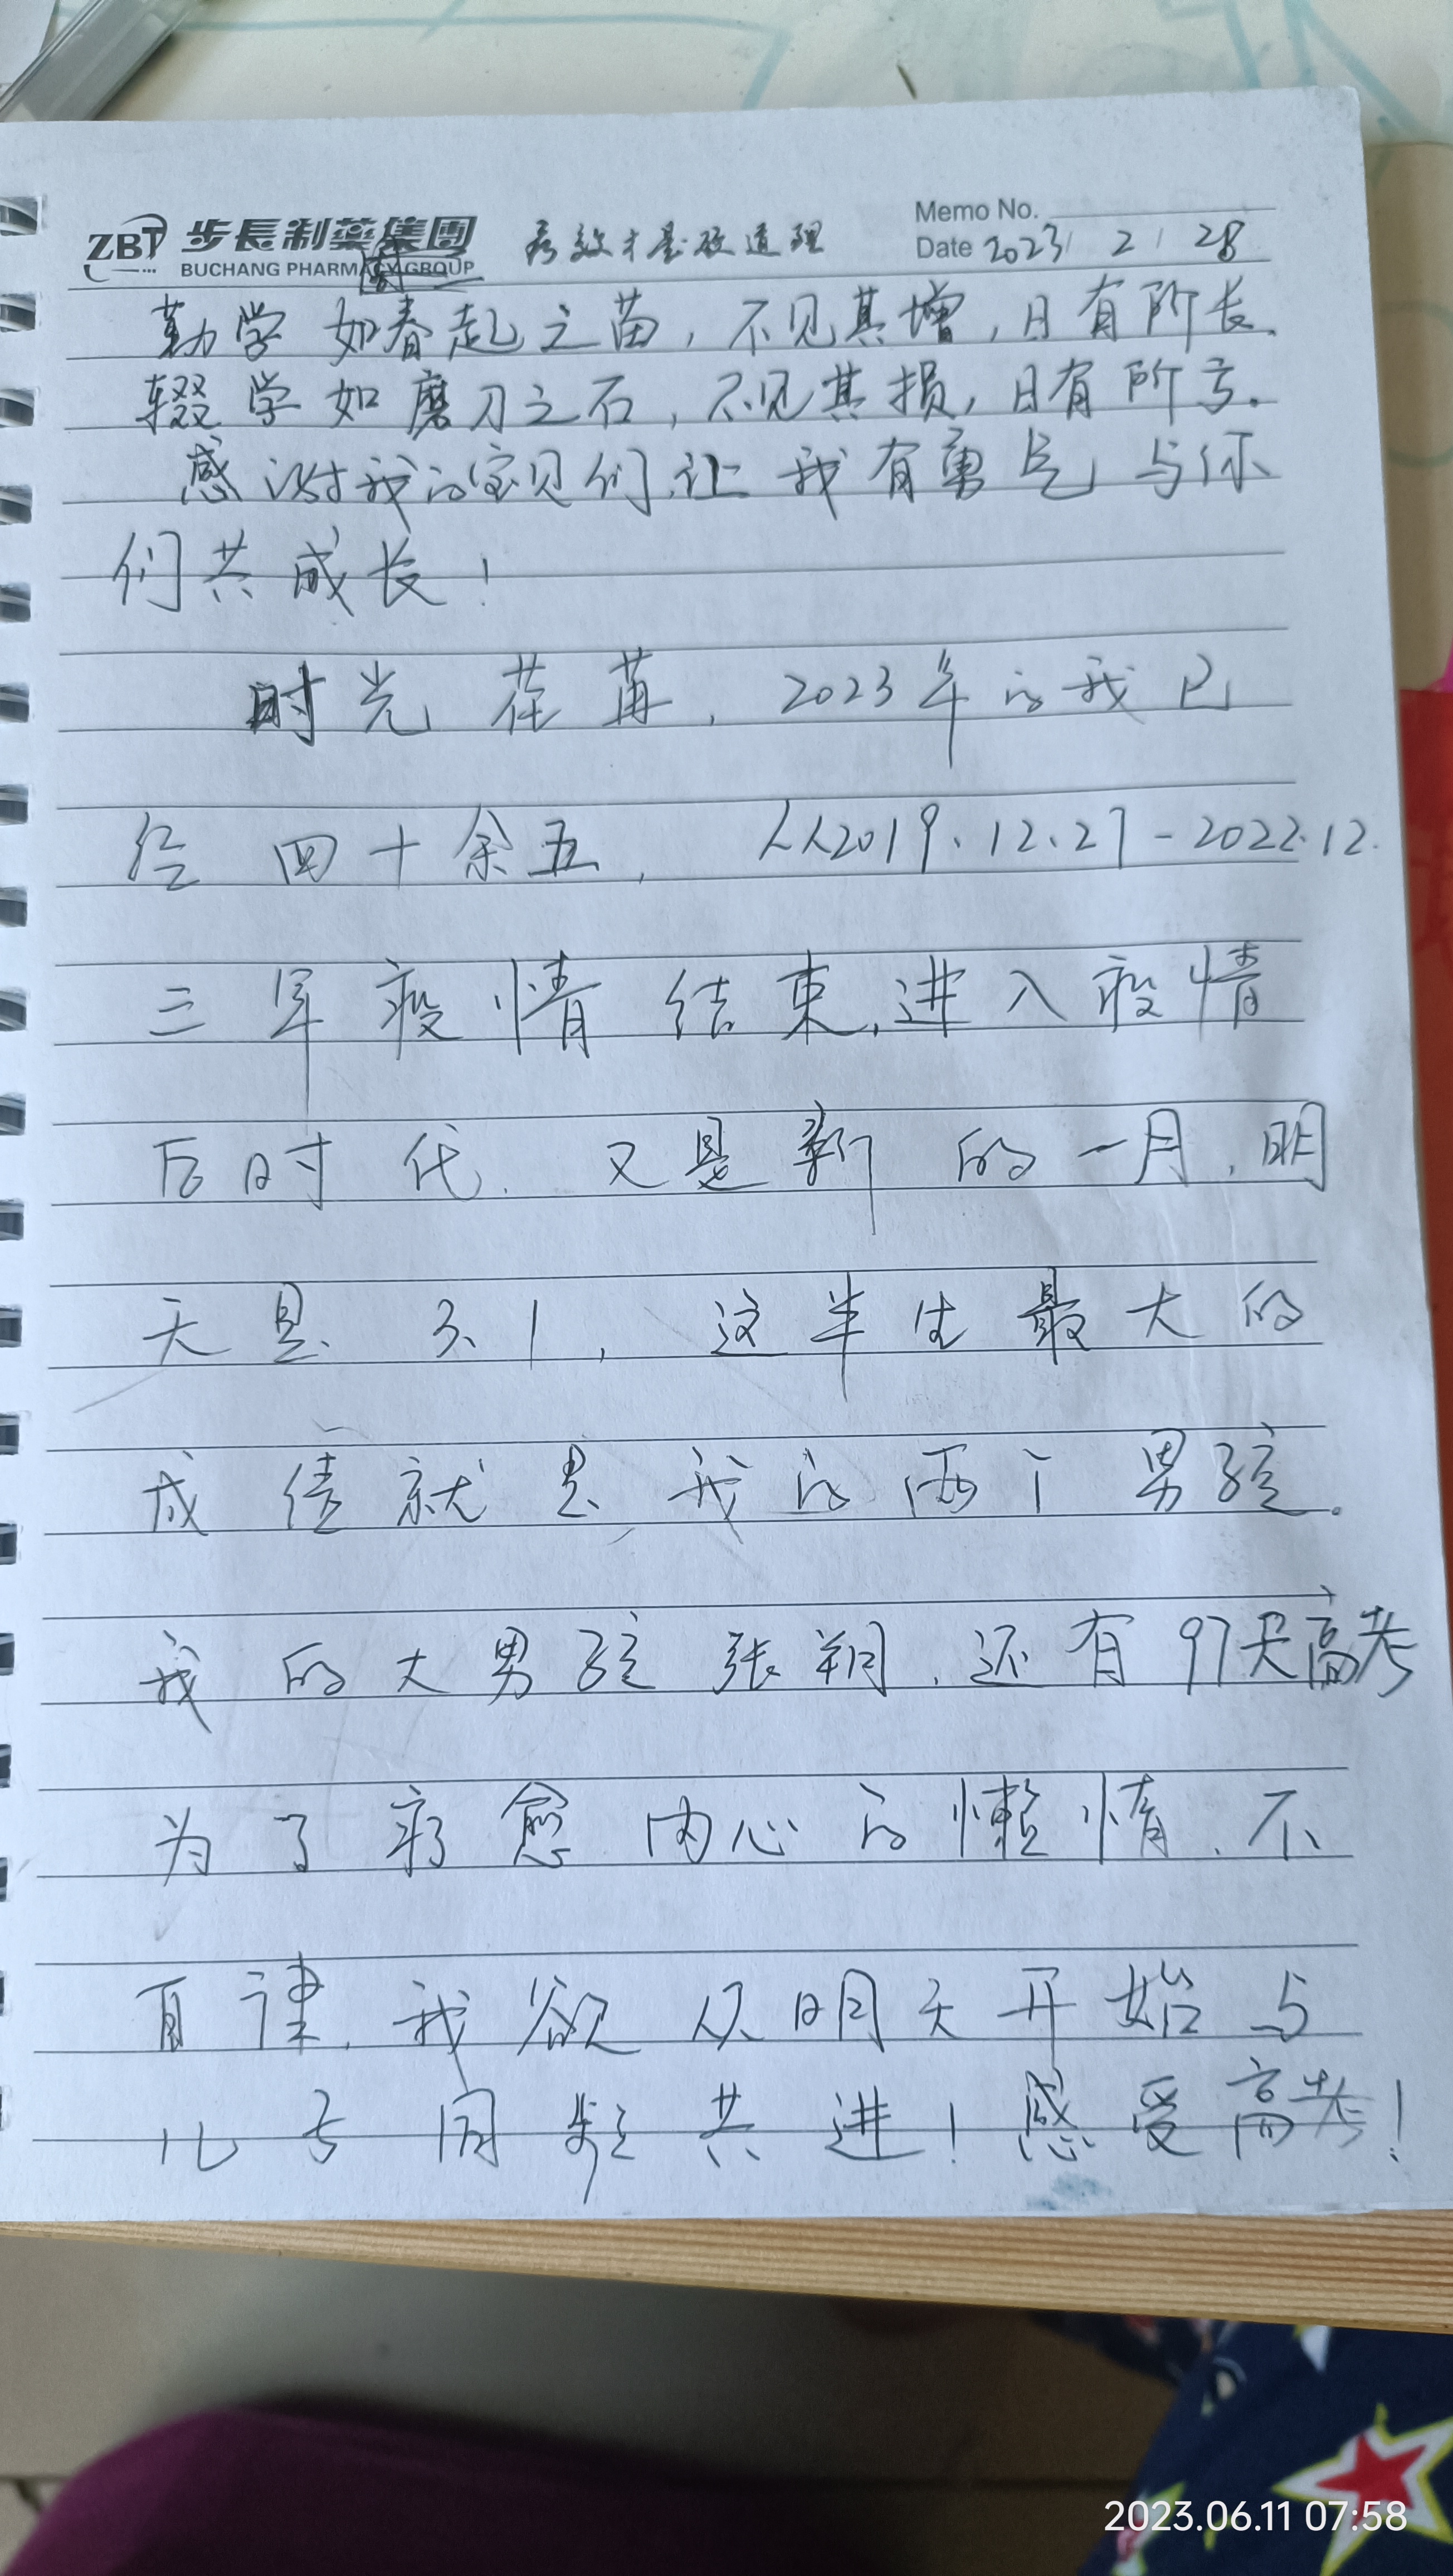 ZBT 步長制藥集團 疗效才是硬道理 Memo No.
BUCHANG PHARMACY GROUP Date 2023/2/28
勤学如春起之苗，不见其增，日有所长.
辍学如磨刀之石，不见其损，日有所亏.
感谢我的宝贝们，让我有勇气与你
们共成长！
时光荏苒，2023年的我已
经四十余五，从2019.12.27-2022.12.
三年疫情结束，进入疫情
后时代.又是新的一月，明
天是3、1，这半生最大的
成绩就是我的两个男孩。
我的大男孩张翔，还有97天高考
为了疗愈内心的懒惰、不
自律，我欲从明天开始与
儿子同频共进！感受高考！
2023.06.11 07:58